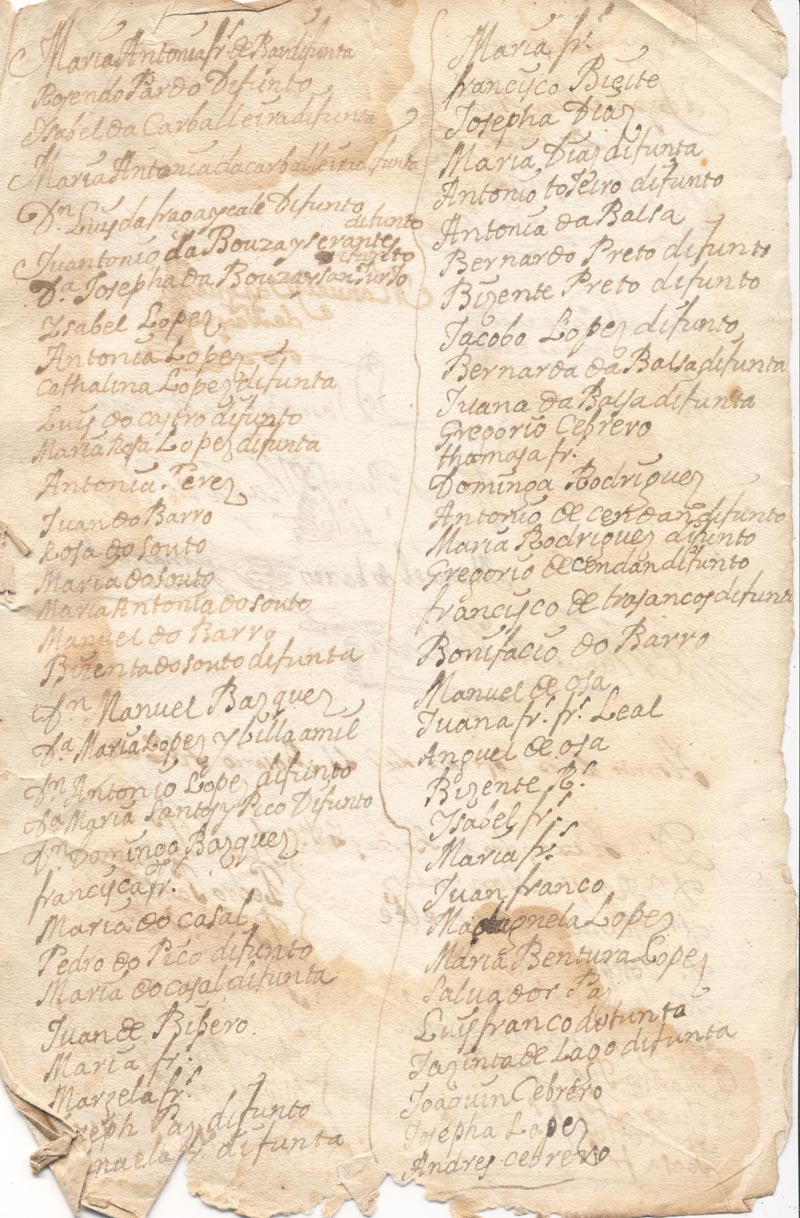 Maria Antonia frs de Bandifunta
Rosendo Pardo Difunto
Ysabel da Carballeira difunta
Maria Antonia da carballeira difunta
Dn Luis da fraga y cale Difunto
difunto
Juantonio da Bouza y serantes
difunto
Da Josepha da Bouza y santurio
Ysabel Lopez
Antonia Lopez
Cathalina Lopez difunta
Luis do castro difunto
Maria Rosa Lopez difunta
Antonia Perez
Juan do Barro
Rosa do souto
Maria do souto
Maria Antonia do souto
Manuel do Barro
Bizenta do souto difunta
Dn Manuel Bazquez
Da Maria Lopez y billa amil
Dn Antonio Lopez difinto
Da Maria Santos y Pico Difunto
Dn Domingo Bazquez
francisca fr.
Maria do casal
Pedro do Pico difunto
Maria do casal difunta
Juan de Bibero.
Maria fr.
Marzela frs
seph Paz difunto
nuela fr. difunta
Maria frs
francisco Bieite
Josepha Diaz
Maria Diaz difunta
Antonio toseiro difunto
Antonia da Balsa
Bernardo Preto difunto
Bizente Preto difunto
Jacobo Lopez difunto
Bernarda da Balsa difunta
Juana da Balsa difunta
Gregorio Cebrero
thomasa fr.
Dominga Rodriguez
Antonio de cendan difunto
Maria Rodriguez difunto
Gregorio de cendan difunto
francisco de trasancos difunto
Bonifacio do Barro
Manuel de osa
Juana frs. frs. Leal
Anguel de osa
Bizente Rs.
Ysabel frs.
Maria frs.
Juan franco
Lopez
Maria Bentura Lopez
Salvador Paz
Luis franco defunta
Jazinta de Lago difunta
Joaquin Cebrero
Josepha Lopez
Andres cebrero